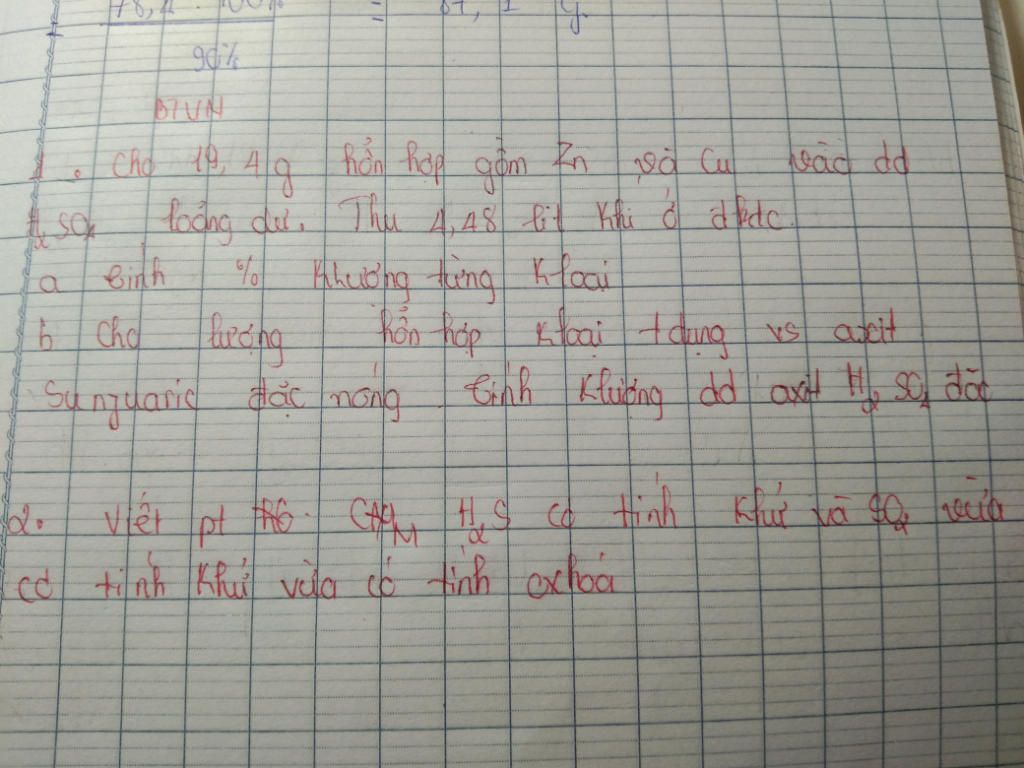 78,4 . 100% = 87,1 g
90%
BTVN
1. Cho 19,4 g hỗn hợp gồm Zn và Cu vào dd
H2SO4 loảng dư. Thu 4,48 lit khí ở đkdc.
a tính % Khượng từng Kloại
b Cho lượng hỗn hợp Kloại tdụng vs axit
Sunfuaric đặc nóng tính Klượng dd axit H2SO4 đăc
2. Viết pt CM H2S có tính khử và SO2 vừa
có tính Khử vừa có tính oxhoá